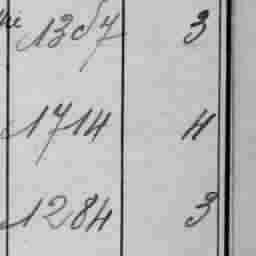 1357 3
1714 4
1284 3